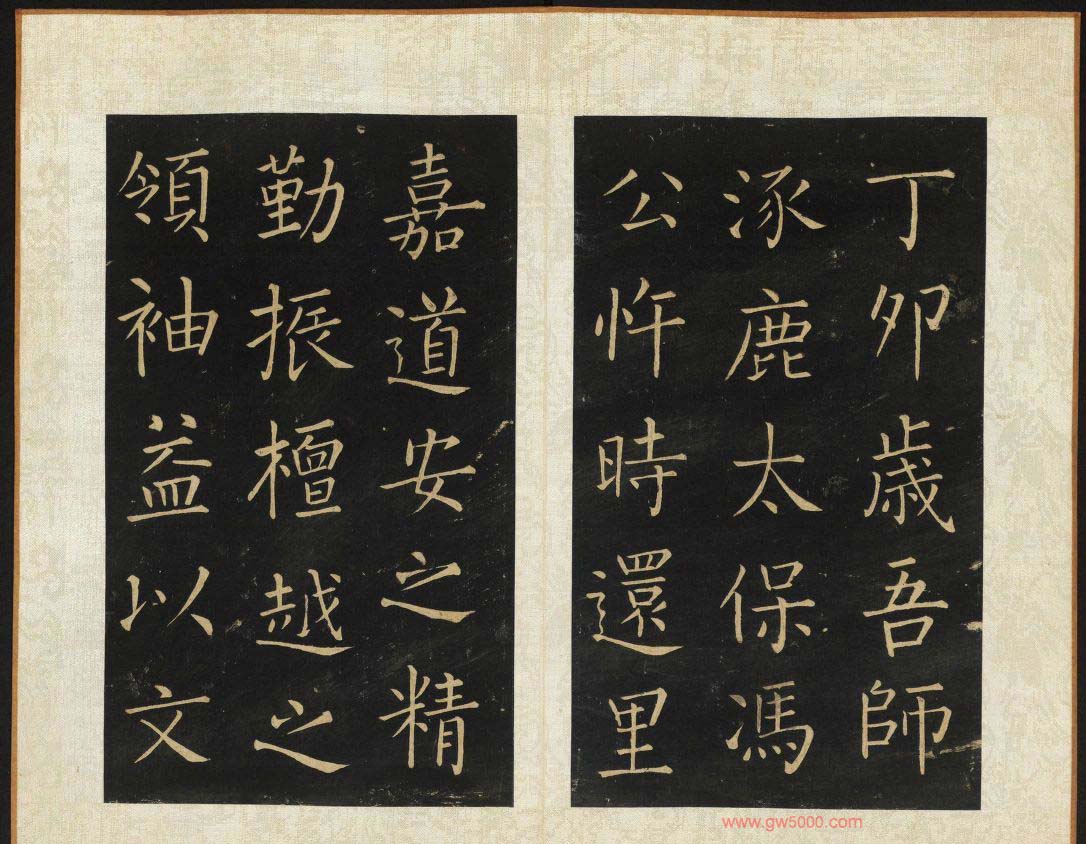 丁卯歲吾師
涿鹿太保馮
公忤時還里
嘉道安之精
勤振檀越之
領袖益以文
www.gw5000.com